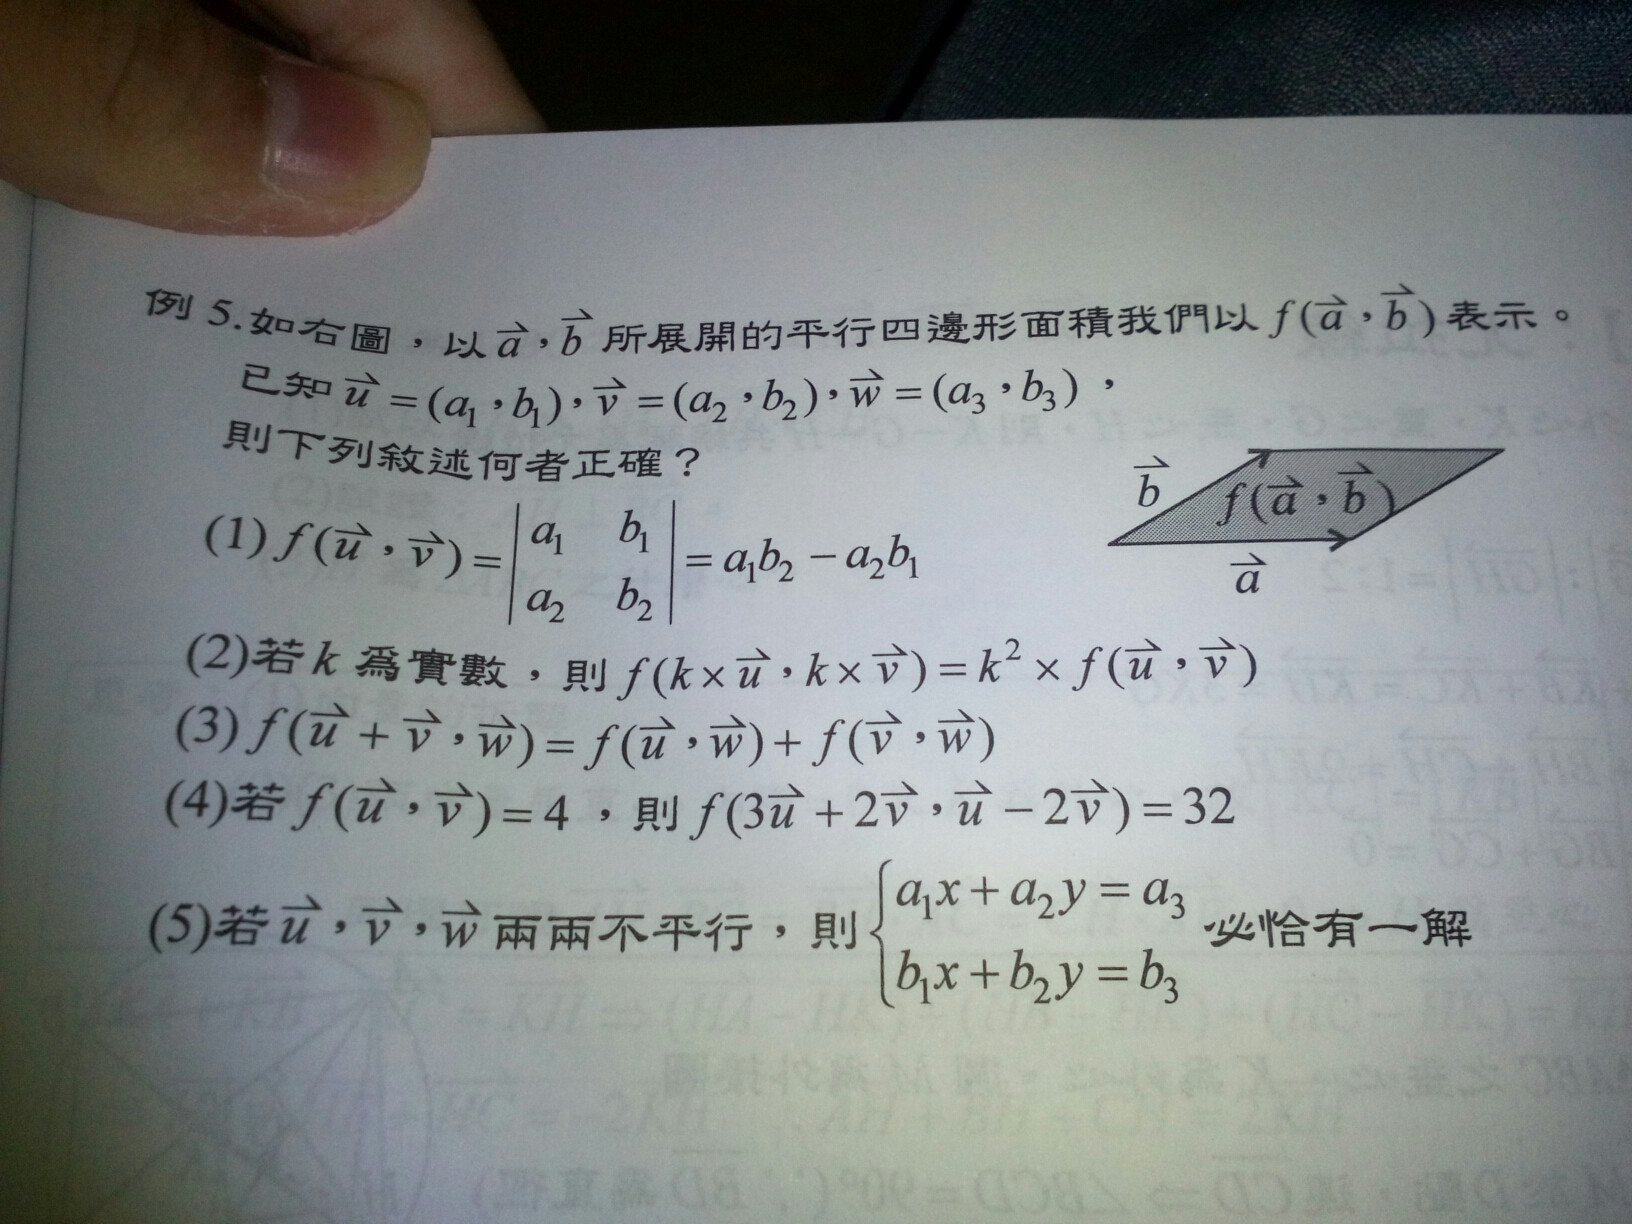 例 5.如右圖，以 a⃗，b⃗ 所展開的平行四邊形面積我們以 f(a⃗，b⃗) 表示。
已知 u⃗ = (a₁，b₁)，v⃗ = (a₂，b₂)，w⃗ = (a₃，b₃)，
則下列敘述何者正確？
b⃗
f(a⃗，b⃗)
a⃗
(1) f(u⃗，v⃗) = | a₁ b₁ | = a₁b₂ − a₂b₁
| a₂ b₂ |
(2)若 k 為實數，則 f(k × u⃗，k × v⃗) = k² × f(u⃗，v⃗)
(3) f(u⃗ + v⃗，w⃗) = f(u⃗，w⃗) + f(v⃗，w⃗)
(4)若 f(u⃗，v⃗) = 4，則 f(3u⃗ + 2v⃗，u⃗ − 2v⃗) = 32
(5)若 u⃗，v⃗，w⃗ 兩兩不平行，則 { a₁x + a₂y = a₃ 必恰有一解
b₁x + b₂y = b₃